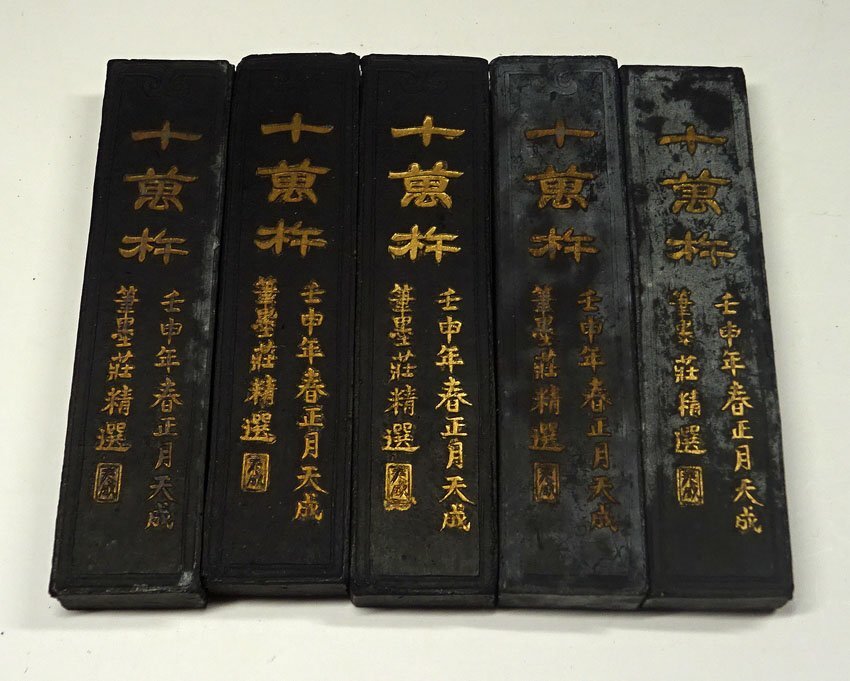 十萬杵
壬申年春正月天成
筆墨莊精選
天成
十萬杵
壬申年春正月天成
筆墨莊精選
天成
十萬杵
壬申年春正月天成
筆墨莊精選
天成
十萬杵
壬申年春正月天成
筆墨莊精選
天成
十萬杵
壬申年春正月天成
筆墨莊精選
天成